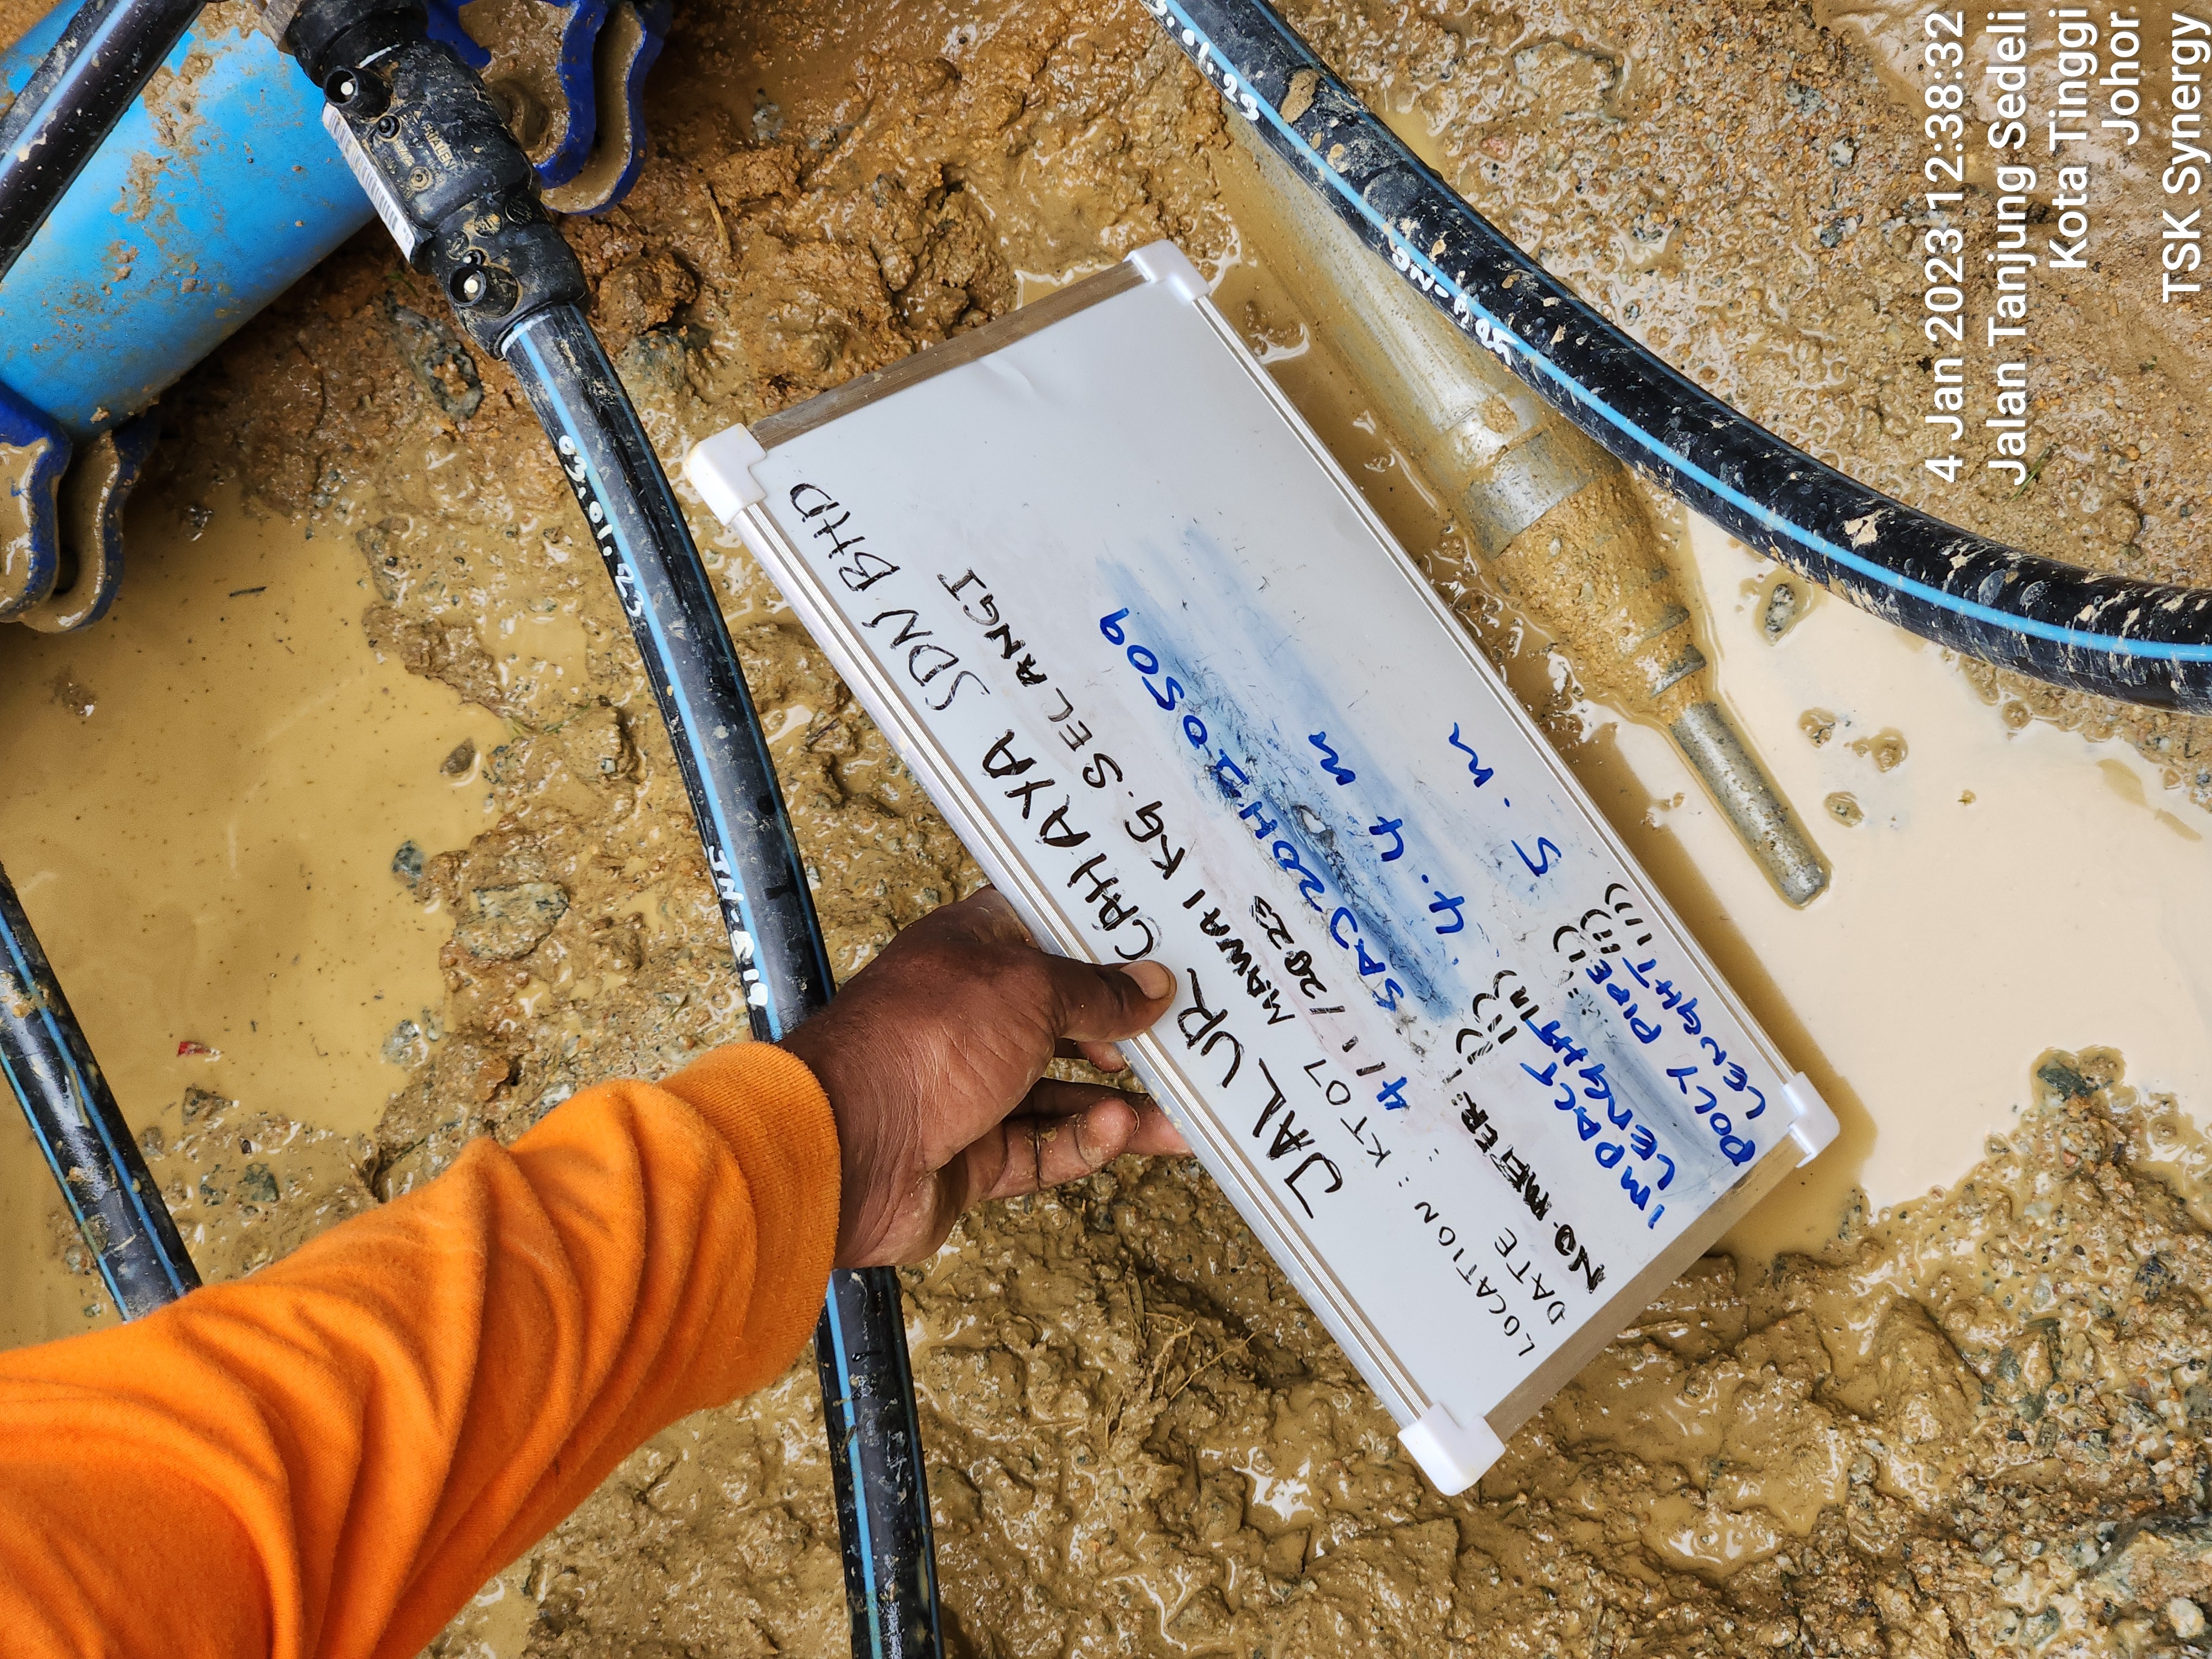 03.01.23
JALUR CAHAYA SDN BHD
LOCATION : KT07 MAWAI KG. SELANGI
DATE : 4/1/2023
NO METER: i) SAJ20HJ10509
ii)
iii)
IMPACT
LENGHT 4.4 m
POLY PIPE i) 5.m
LENGHT ii)
iii)
4 Jan 2023 12:38:32
Jalan Tanjung Sedeli
Kota Tinggi
Johor
TSK Synergy